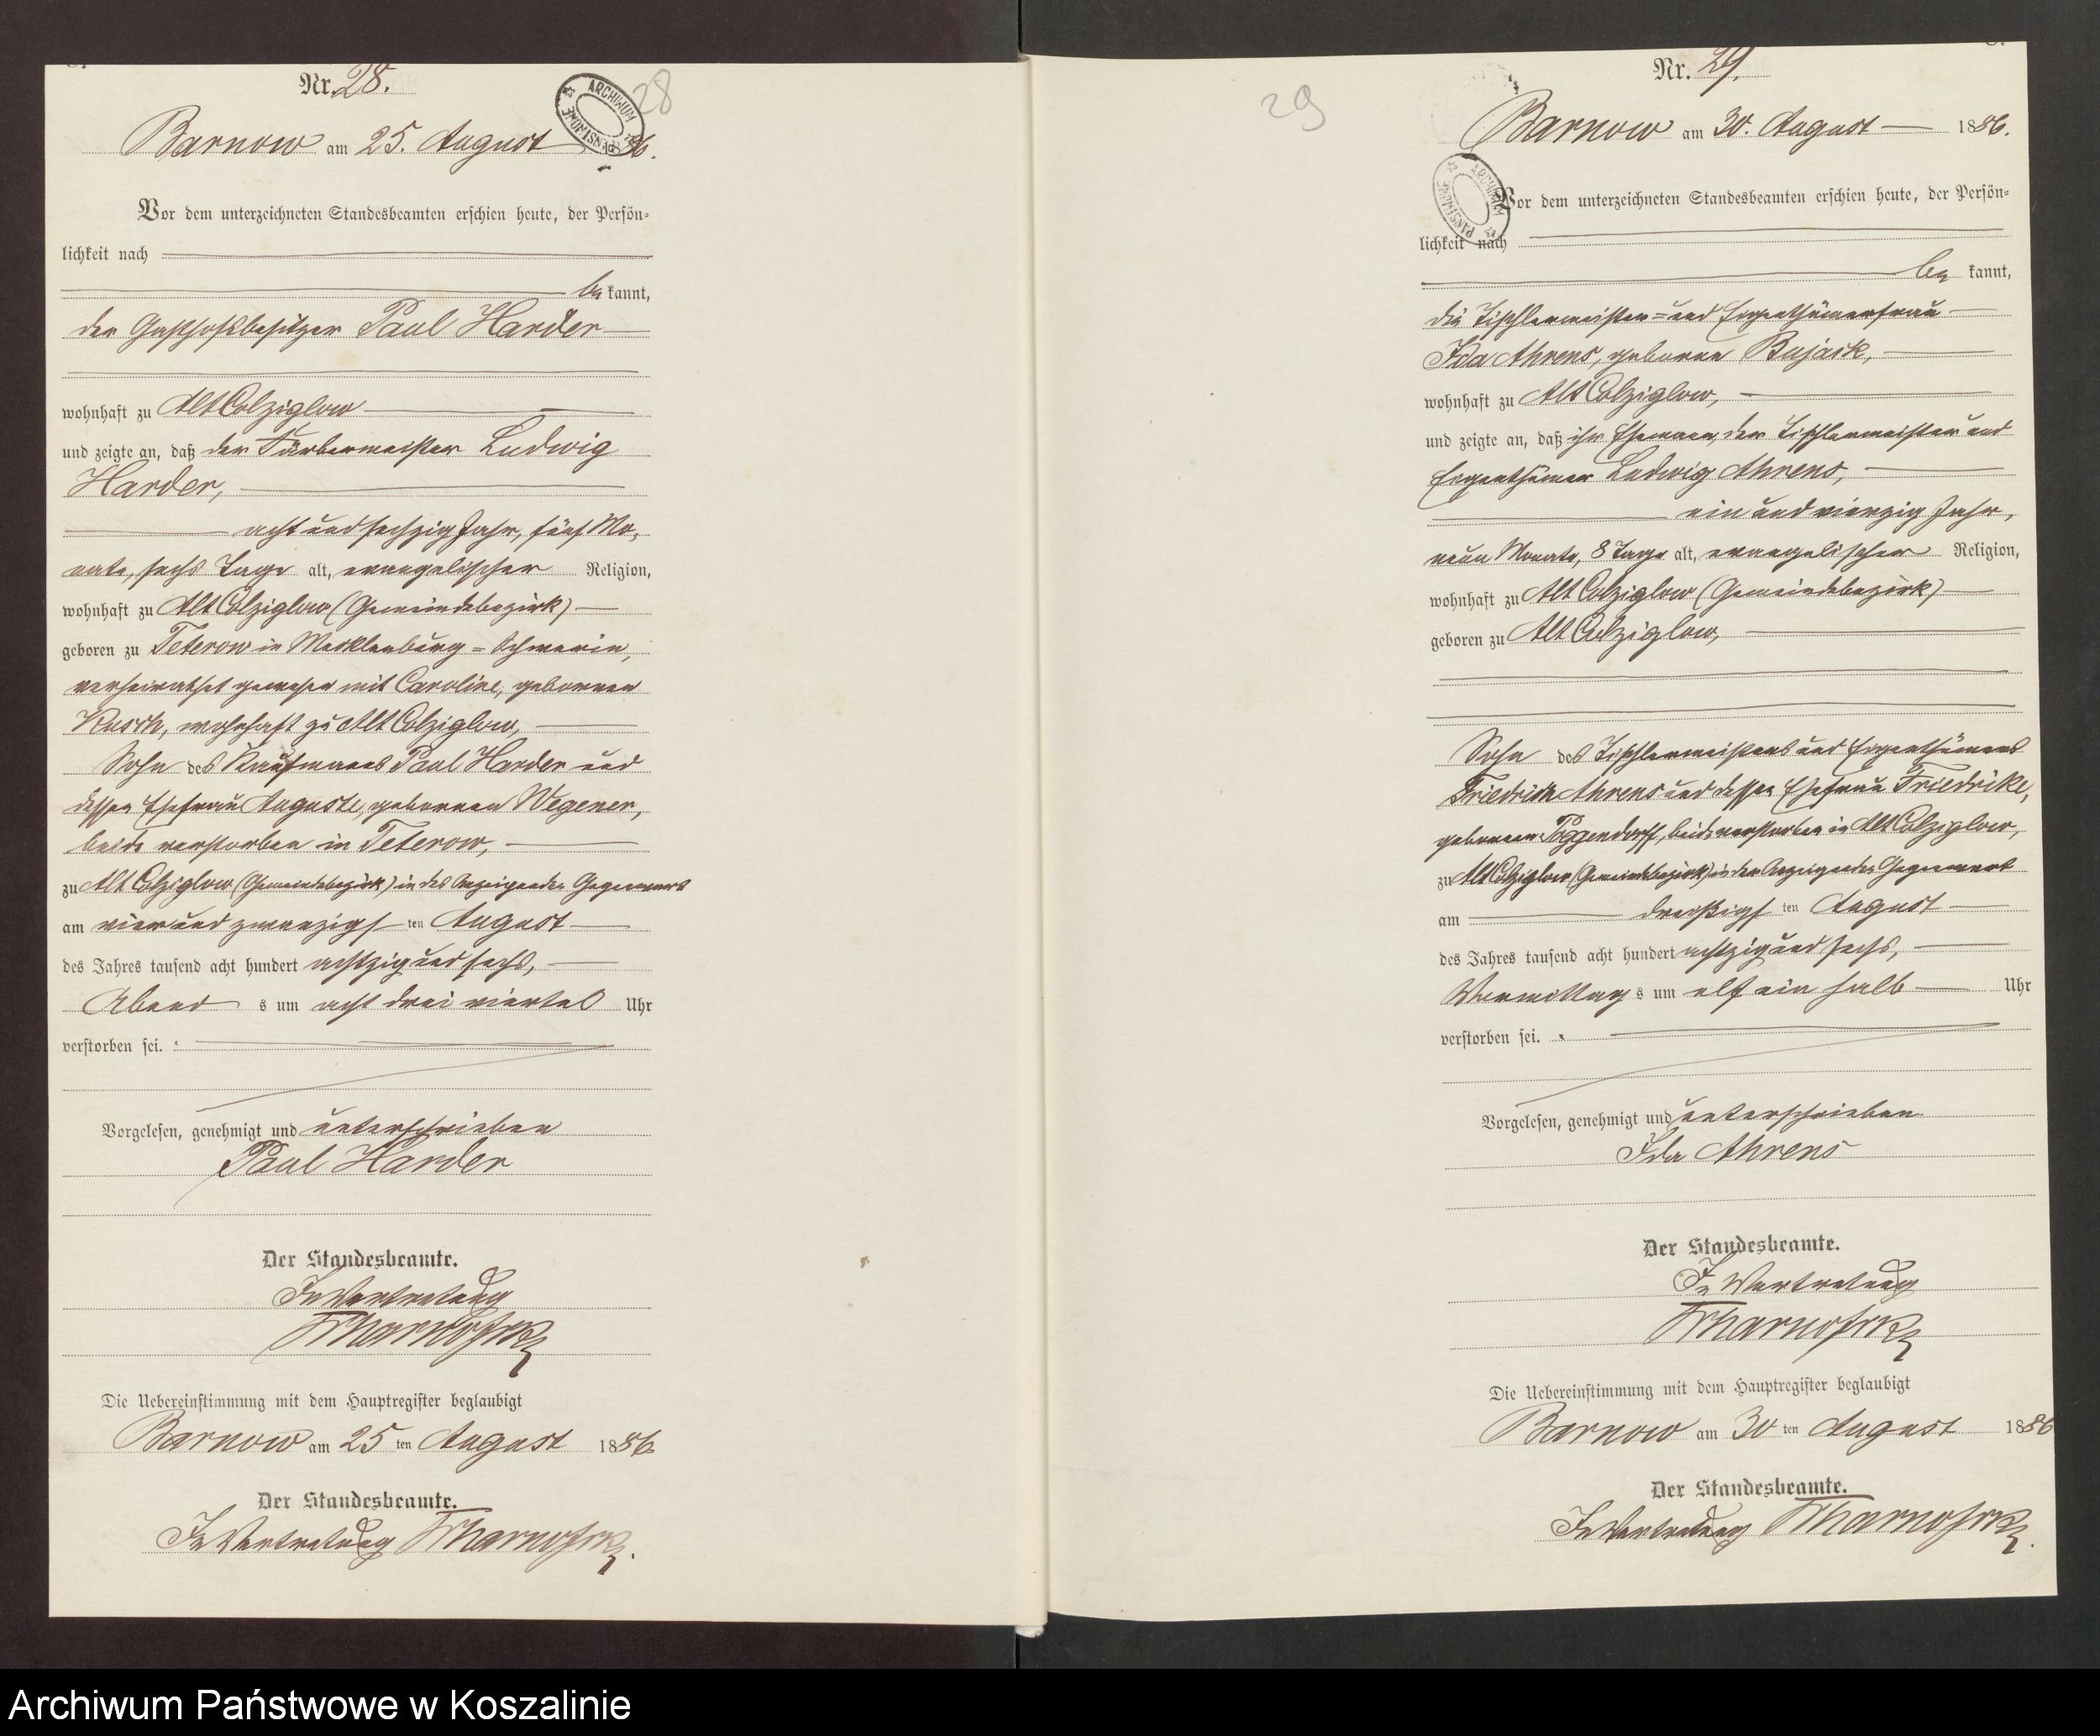 Nr. 28.
28
ARCHIWUM PAŃSTWOWE
Barnow am 25. August 86.
Vor dem unterzeichneten Standesbeamten erschien heute, der Persön-
lichkeit nach
bekannt,
der Gasthofsbesitzer Paul Harder
wohnhaft zu Alt Colziglow
und zeigte an, daß der Färbermeister Ludwig
Harder,
acht und sechzig Jahr, fünf Mo-
nate, sechs Tage alt, evangelischer Religion,
wohnhaft zu Alt Colziglow (Gemeindebezirk)
geboren zu Teterow in Mecklenburg=Schwerin,
verheirathet gewesen mit Caroline, geborenen
Kusch, wohnhaft zu Alt Colziglow,
Sohn des Kaufmanns Paul Harder und
dessen Ehefrau Auguste, geborenen Wegener,
beide verstorben in Teterow,
zu Alt Colziglow (Gemeindebezirk) in des Anzeigenden Gegenwart
am vier und zwanzigsten August
des Jahres tausend acht hundert achtzig und sechs,
Abends um acht drei viertel Uhr
verstorben sei.
Vorgelesen, genehmigt und unterschrieben
Paul Harder
Der Standesbeamte.
In Vertretung
Die Uebereinstimmung mit dem Hauptregister beglaubigt
Barnow am 25 ten August 1886
Der Standesbeamte.
In Vertretung
29
Nr. 29.
Barnow am 30. August 1886.
ARCHIWUM PAŃSTWOWE
Vor dem unterzeichneten Standesbeamten erschien heute, der Persön-
lichkeit nach
bekannt,
die Tischlermeister= und Eigenthümerfrau
Ida Ahrens, geborene Bujack,
wohnhaft zu Alt Colziglow,
und zeigte an, daß ihr Ehemann, der Tischlermeister und
Eigenthümer Ludwig Ahrens,
ein und vierzig Jahr,
neun Monate, 8 Tage alt, evangelischer Religion,
wohnhaft zu Alt Colziglow (Gemeindebezirk)
geboren zu Alt Colziglow,
Sohn des Tischlermeisters und Eigenthümers
Friedrich Ahrens und dessen Ehefrau Friedrike,
geborenen Poggendorff, beide verstorben in Alt Colziglow,
zu Alt Colziglow (Gemeindebezirk) in der Anzeigenden Gegenwart
am dreißigsten August
des Jahres tausend acht hundert achtzig und sechs,
Vormittags um elf ein halb Uhr
verstorben sei.
Vorgelesen, genehmigt und unterschrieben
Ida Ahrens
Der Standesbeamte.
In Vertretung
Die Uebereinstimmung mit dem Hauptregister beglaubigt
Barnow am 30 ten August 1886
Der Standesbeamte.
In Vertretung
Archiwum Państwowe w Koszalinie